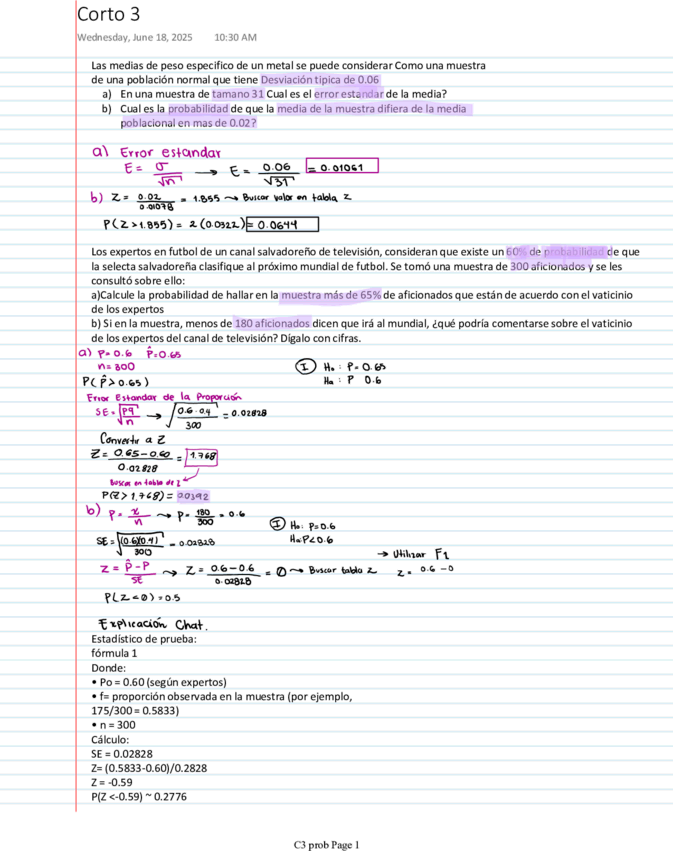 Corto 3
Wednesday, June 18, 2025 10:30 AM
Las medias de peso especifico de un metal se puede considerar Como una muestra
de una población normal que tiene Desviación tipica de 0.06
a) En una muestra de tamano 31 Cual es el error estandar de la media?
b) Cual es la probabilidad de que la media de la muestra difiera de la media
poblacional en mas de 0.02?
a) Error estandar
E = σ/√n → E = 0.06/√31 = 0.01061
b) Z = 0.02/0.01078 = 1.855 → Buscar valor en tabla z
P(Z > 1.855) = 2(0.0322) = 0.0644
Los expertos en futbol de un canal salvadoreño de televisión, consideran que existe un 60% de probabilidad de que
la selecta salvadoreña clasifique al próximo mundial de futbol. Se tomó una muestra de 300 aficionados y se les
consultó sobre ello:
a)Calcule la probabilidad de hallar en la muestra más de 65% de aficionados que están de acuerdo con el vaticinio
de los expertos
b) Si en la muestra, menos de 180 aficionados dicen que irá al mundial, ¿qué podría comentarse sobre el vaticinio
de los expertos del canal de televisión? Dígalo con cifras.
a) P = 0.6 p̂ = 0.65
n = 300
I Ho : P = 0.65
Ha : P 0.6
P(p̂ > 0.65)
Error Estandar de la Proporción
SE = √pq/n → √0.6 · 0.4/300 = 0.02828
Convertir a Z
Z = 0.65 - 0.60/0.02828 = 1.768
Buscar en tabla de Z
P(Z > 1.768) = 0.0392
b) P = x/n → P = 180/300 = 0.6
I Ho: P=0.6
Ha: P<0.6
SE = √(0.6)(0.4)/300 = 0.02828
→ Utilizar F1
Z = p̂ - P/SE → Z = 0.6 - 0.6/0.02828 = 0 → Buscar tabla z
Z = 0.6 - 0
P(Z < 0) = 0.5
Explicación Chat.
Estadístico de prueba:
fórmula 1
Donde:
• Po = 0.60 (según expertos)
• f= proporción observada en la muestra (por ejemplo,
175/300 = 0.5833)
• n = 300
Cálculo:
SE = 0.02828
Z= (0.5833-0.60)/0.2828
Z = -0.59
P(Z <-0.59) ~ 0.2776
C3 prob Page 1